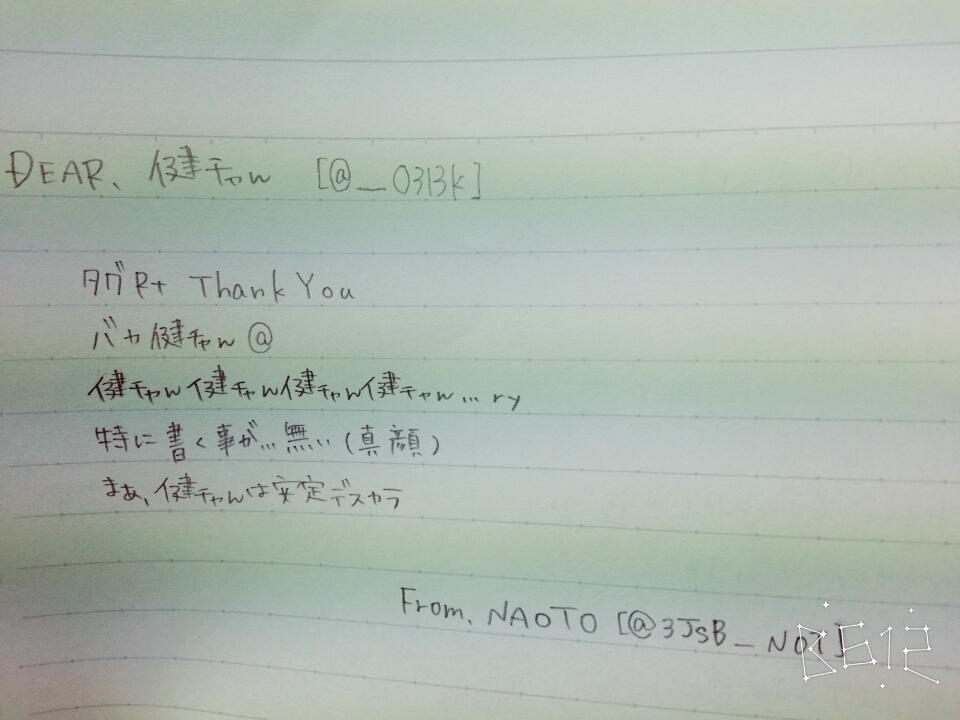 DEAR、健チャん [@__0313k]
タグR+ Thank You
バカ健チャん@
健チャん健チャん健チャん健チャん…ry
特に書く事が…無い(真顔)
まぁ、健チャんは安定デスカラ
From. NAOTO [@3JSB_NOT]
B612